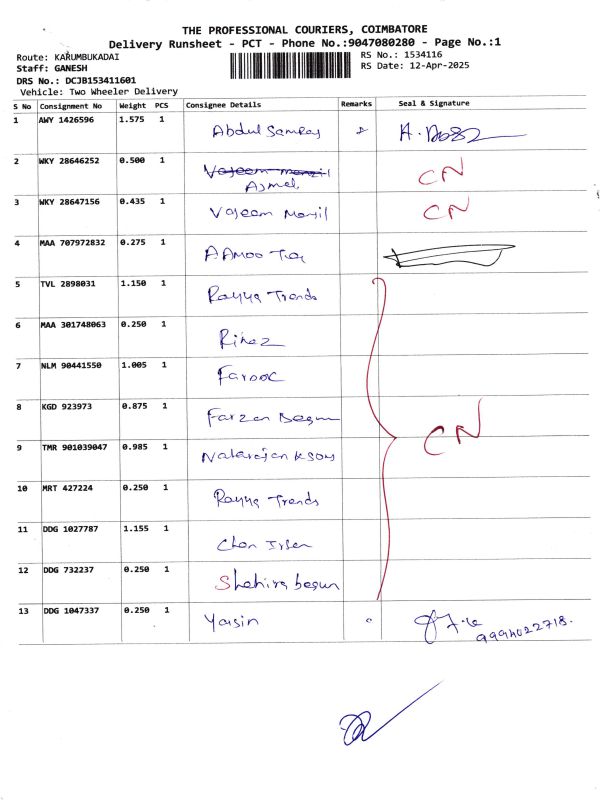 THE PROFESSIONAL COURIERS, COIMBATORE
Delivery Runsheet - PCT - Phone No.:9047080280 - Page No.:1
Route: KARUMBUKADAI
RS No.: 1534116
Staff: GANESH
RS Date: 12-Apr-2025
DRS No.: DCJB153411601
Vehicle: Two Wheeler Delivery
S No Consignment No Weight PCS Consignee Details Remarks Seal & Signature
1 AWY 1426596 1.575 1 Abdul
2 WKY 28646252 0.500 1 Vajeem manzil CN
Ajmel
3 WKY 28647156 0.435 1 Vajeem Manjil CN
4 MAA 707972832 0.275 1 AAMOO
5 TVL 2898031 1.150 1 Rayya Trends
6 MAA 301748063 0.250 1 Rihaz
7 NLM 90441550 1.005 1 Farooc
8 KGD 923973 0.875 1 Farzan Begum CN
9 TMR 901039047 0.985 1 Natarajan
10 MRT 427224 0.250 1 Rayya Trends
11 DDG 1027787 1.155 1
12 DDG 732237 0.250 1 Shahira begum
13 DDG 1047337 0.250 1 Yasin
9994022718.